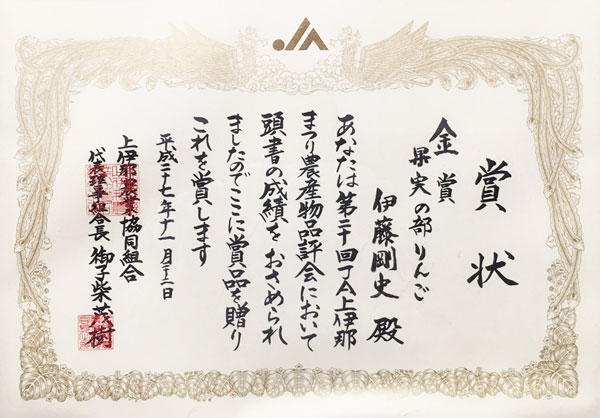 JA
賞状
金賞
果実の部りんご
伊藤剛史 殿
あなたは第二十回JA上伊那
まつり農産物品評会において
頭書の成績をおさめられ
ましたのでここに賞品を贈り
これを賞します
平成二十七年十一月二十二日
上伊那農業協同組合
代表理事組合長 御子柴茂樹